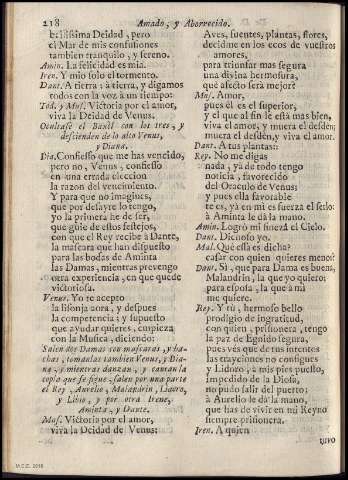 218
Amado, y Aborrecido.
bellissima Deidad, pero
el Mar de mis confusiones
tambien tranquilo, y sereno.
Amin. La felicidad es mia.
Iren. Y mio solo el tormento.
Dant. A tierra, à tierra, y digamos
todos con la voz à un tiempo:
Tod. y Mus. Victoria por el amor,
viva la Deidad de Venus.
Ocultase el Baxèl con los tres, y
descienden de lo alto Venus,
y Diana.
Dia. Confiesso que me has vencido,
pero no, Venus, confiesso
en una errada eleccion
la razon del vencimiento.
Y para que no imagines,
que por desayre lo tengo,
yo la primera he de ser,
que guie de estos festejos,
con que el Rey recibe à Dante,
la mascara que han dispuesto
para las bodas de Aminta
las Damas, mientras prevengo
otra experiencia, en que quede
victoriosa.
Venus. Yo te acepto
la lisonja aora, y despues
la competencia; y supuesto
que ayudar quieres, empieza
con la Musica, diciendo:
Salen dos Damas con mascaras, y hachas,
tomanlas tambien Venus, y Diana,
y mientras danzan, y cantan la
copla que se sigue, salen por una parte
el Rey, Aurelio, Malandrin, Lidoro,
y Libio, y por otra Irene,
Aminta, y Dante.
Mus. Victoria por el amor,
viva la Deidad de Venus:
Aves, fuentes, plantas, flores,
decidme en los ecos de vuestros
amores,
para triunfar mas segura
una divina hermosura,
què afecto serà mejor?
Mus. Amor,
pues èl es el superior,
y el que al fin le està mas bien,
viva el amor, y muera el desdèn,
muera el desdèn, y viva el amor.
Dant. A tus plantas::
Rey. No me digas
nada, yà de todo tengo
noticia, favorecido
del Oraculo de Venus;
y pues ella favorable
te es, yà en mi es fuerza el serlo:
à Aminta le dà la mano.
Amin. Logrò mi fineza el Cielo.
Dant. Dichoso yo.
Mal. Què essa es dicha?
casar con quien quieres menos?
Dant. Si, que para Dama es buena,
Malandrin, la que yo quiero;
para esposa, la que à mi
me quiere.
Rey. Y tù, hermoso bello
prodigio de ingratitud,
con quien, prisionera, tengo
la paz de Egnido segura,
pues vès que de tus intentos
las trayciones no consigues
y Lidoro, à mis pies puesto,
impedido de la Diosa,
no pudo salir del puerto;
à Aurelio le dà la mano,
que has de vivir en mi Reyno
siempre prisionera.
Iren. A quien